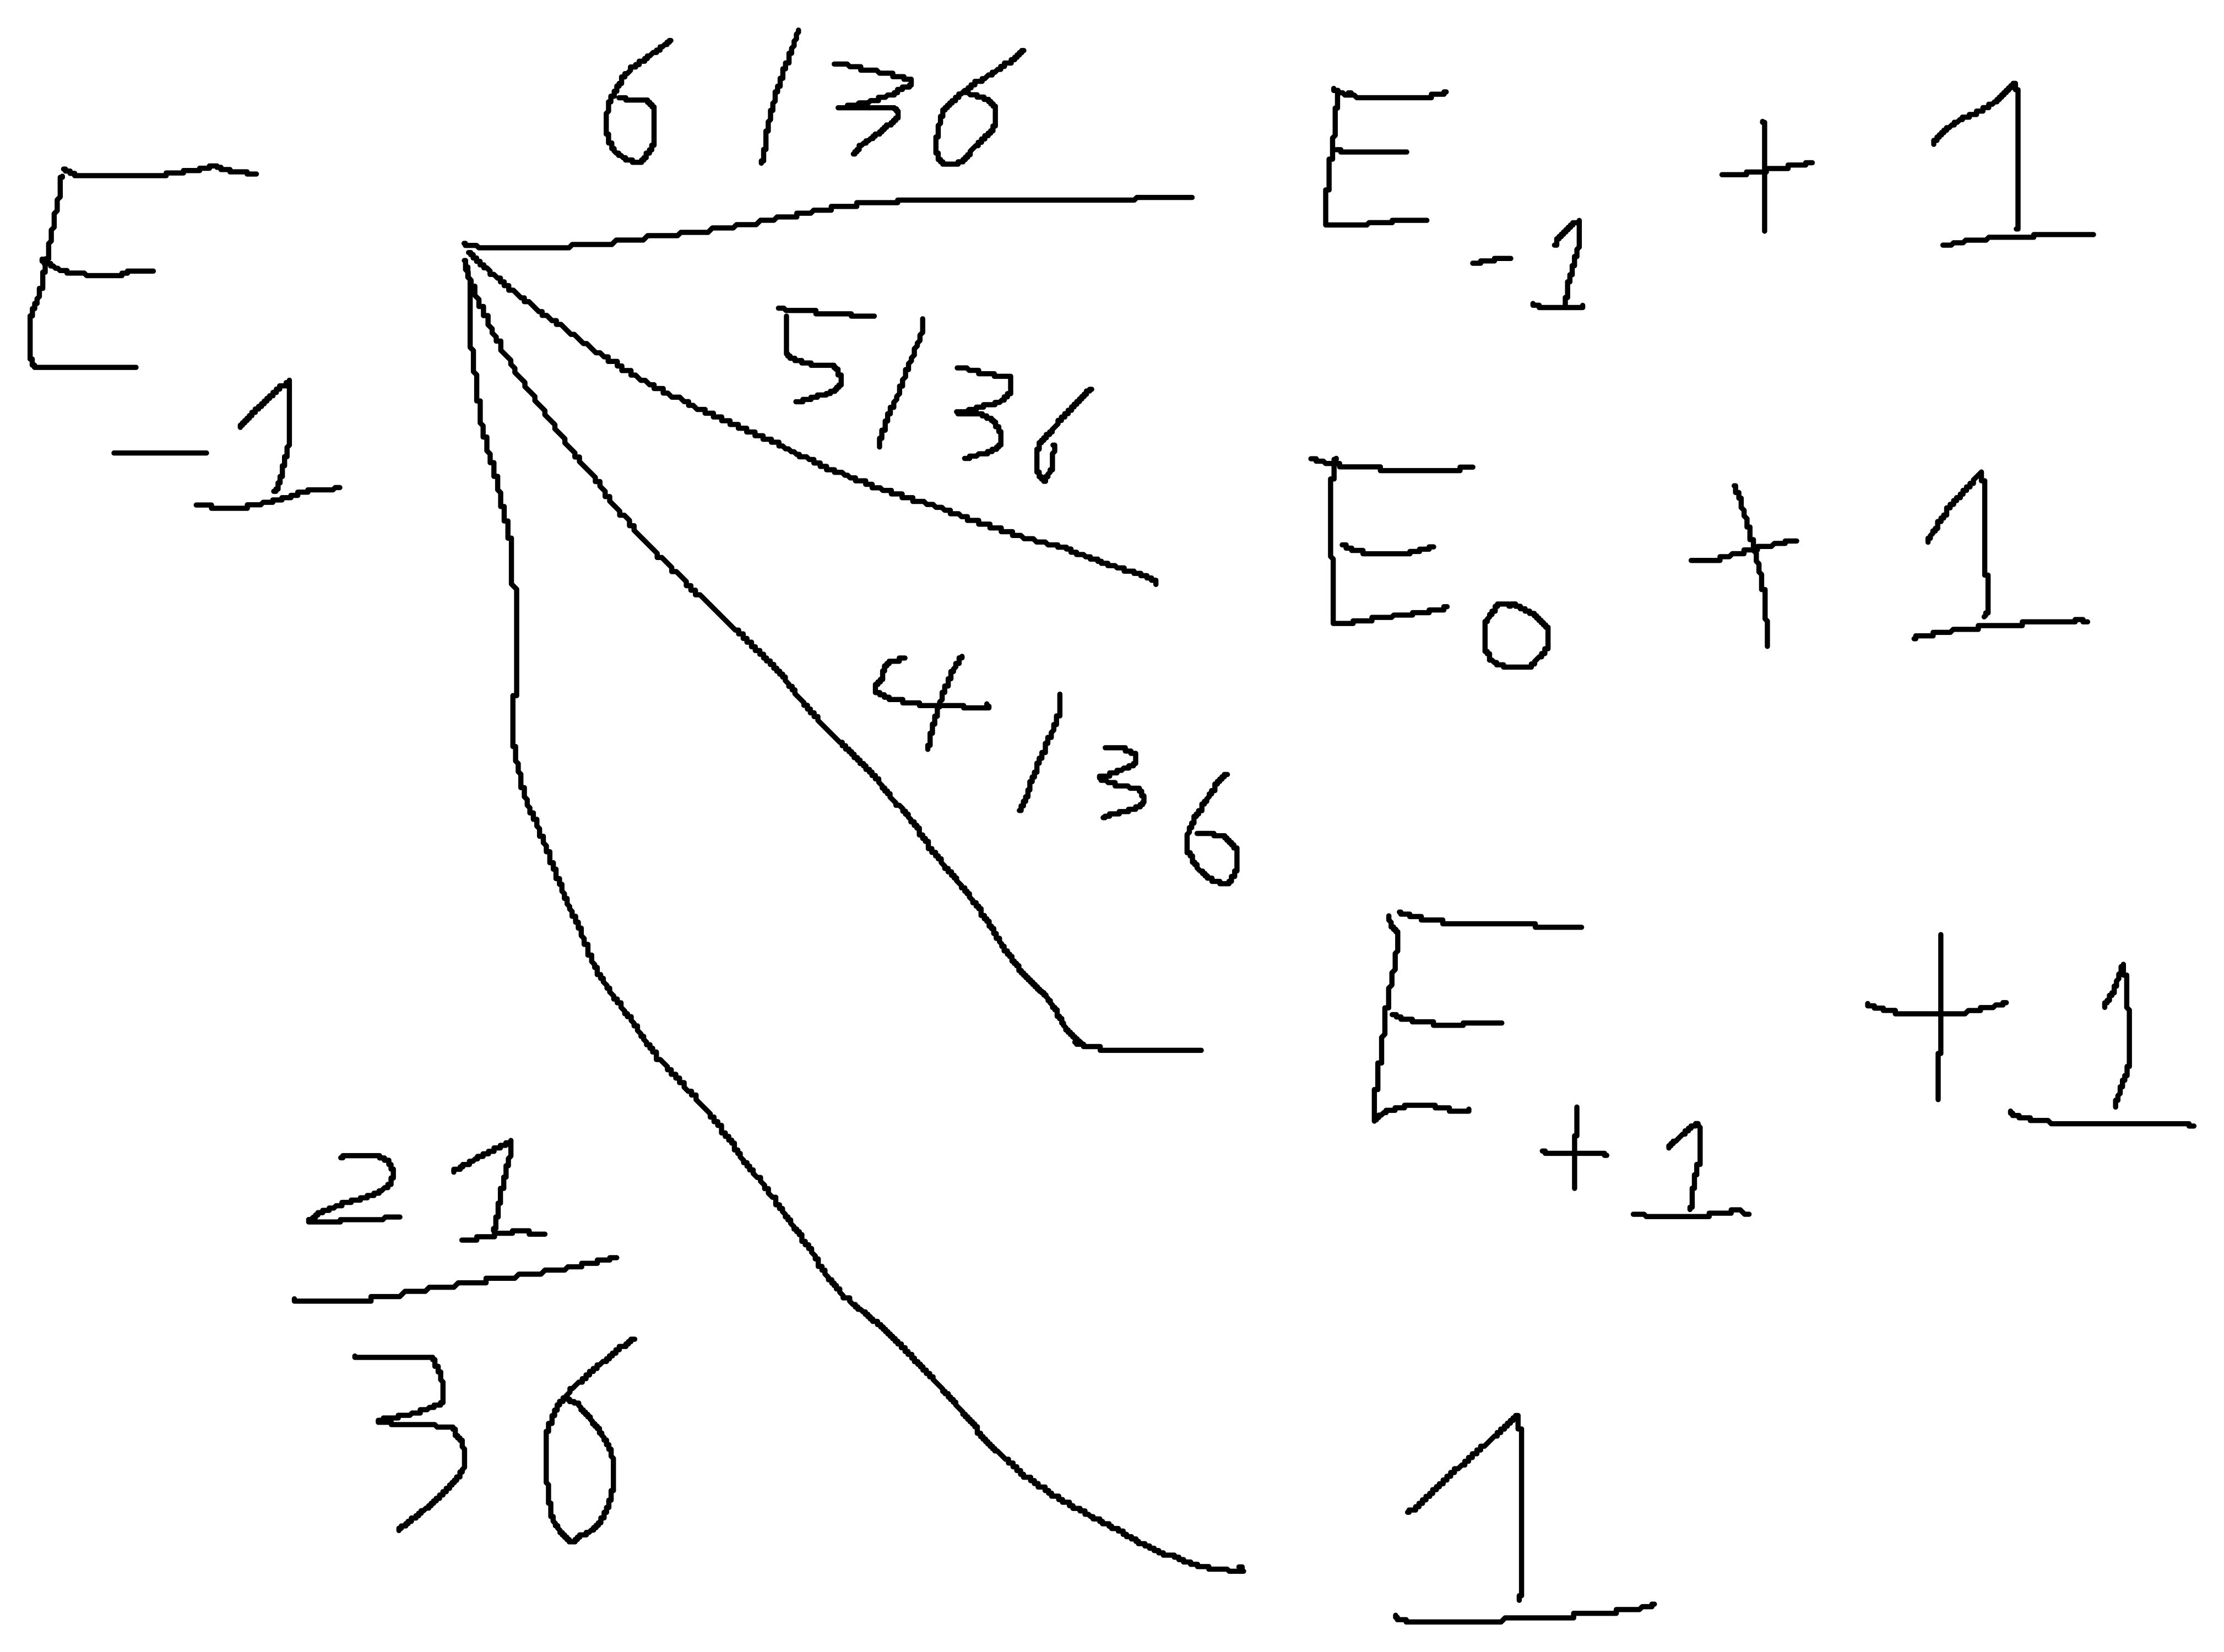 6/36
E-1 + 1
E-1
5/36
E0 + 1
4/36
E+1 + 1
21
36
1